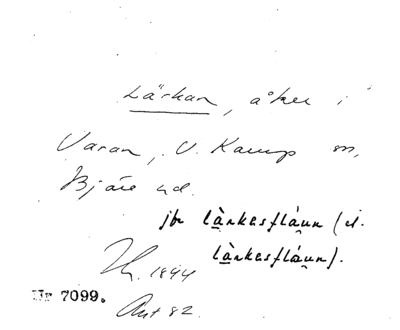 Lärkan, åker i
Varan, V. Karup sn,
Bjäre hd.
jfr là̱nkesflåu̯n (el.
là̱nkesflåu̯n).
1844
Nr 7099.
Ant 82.